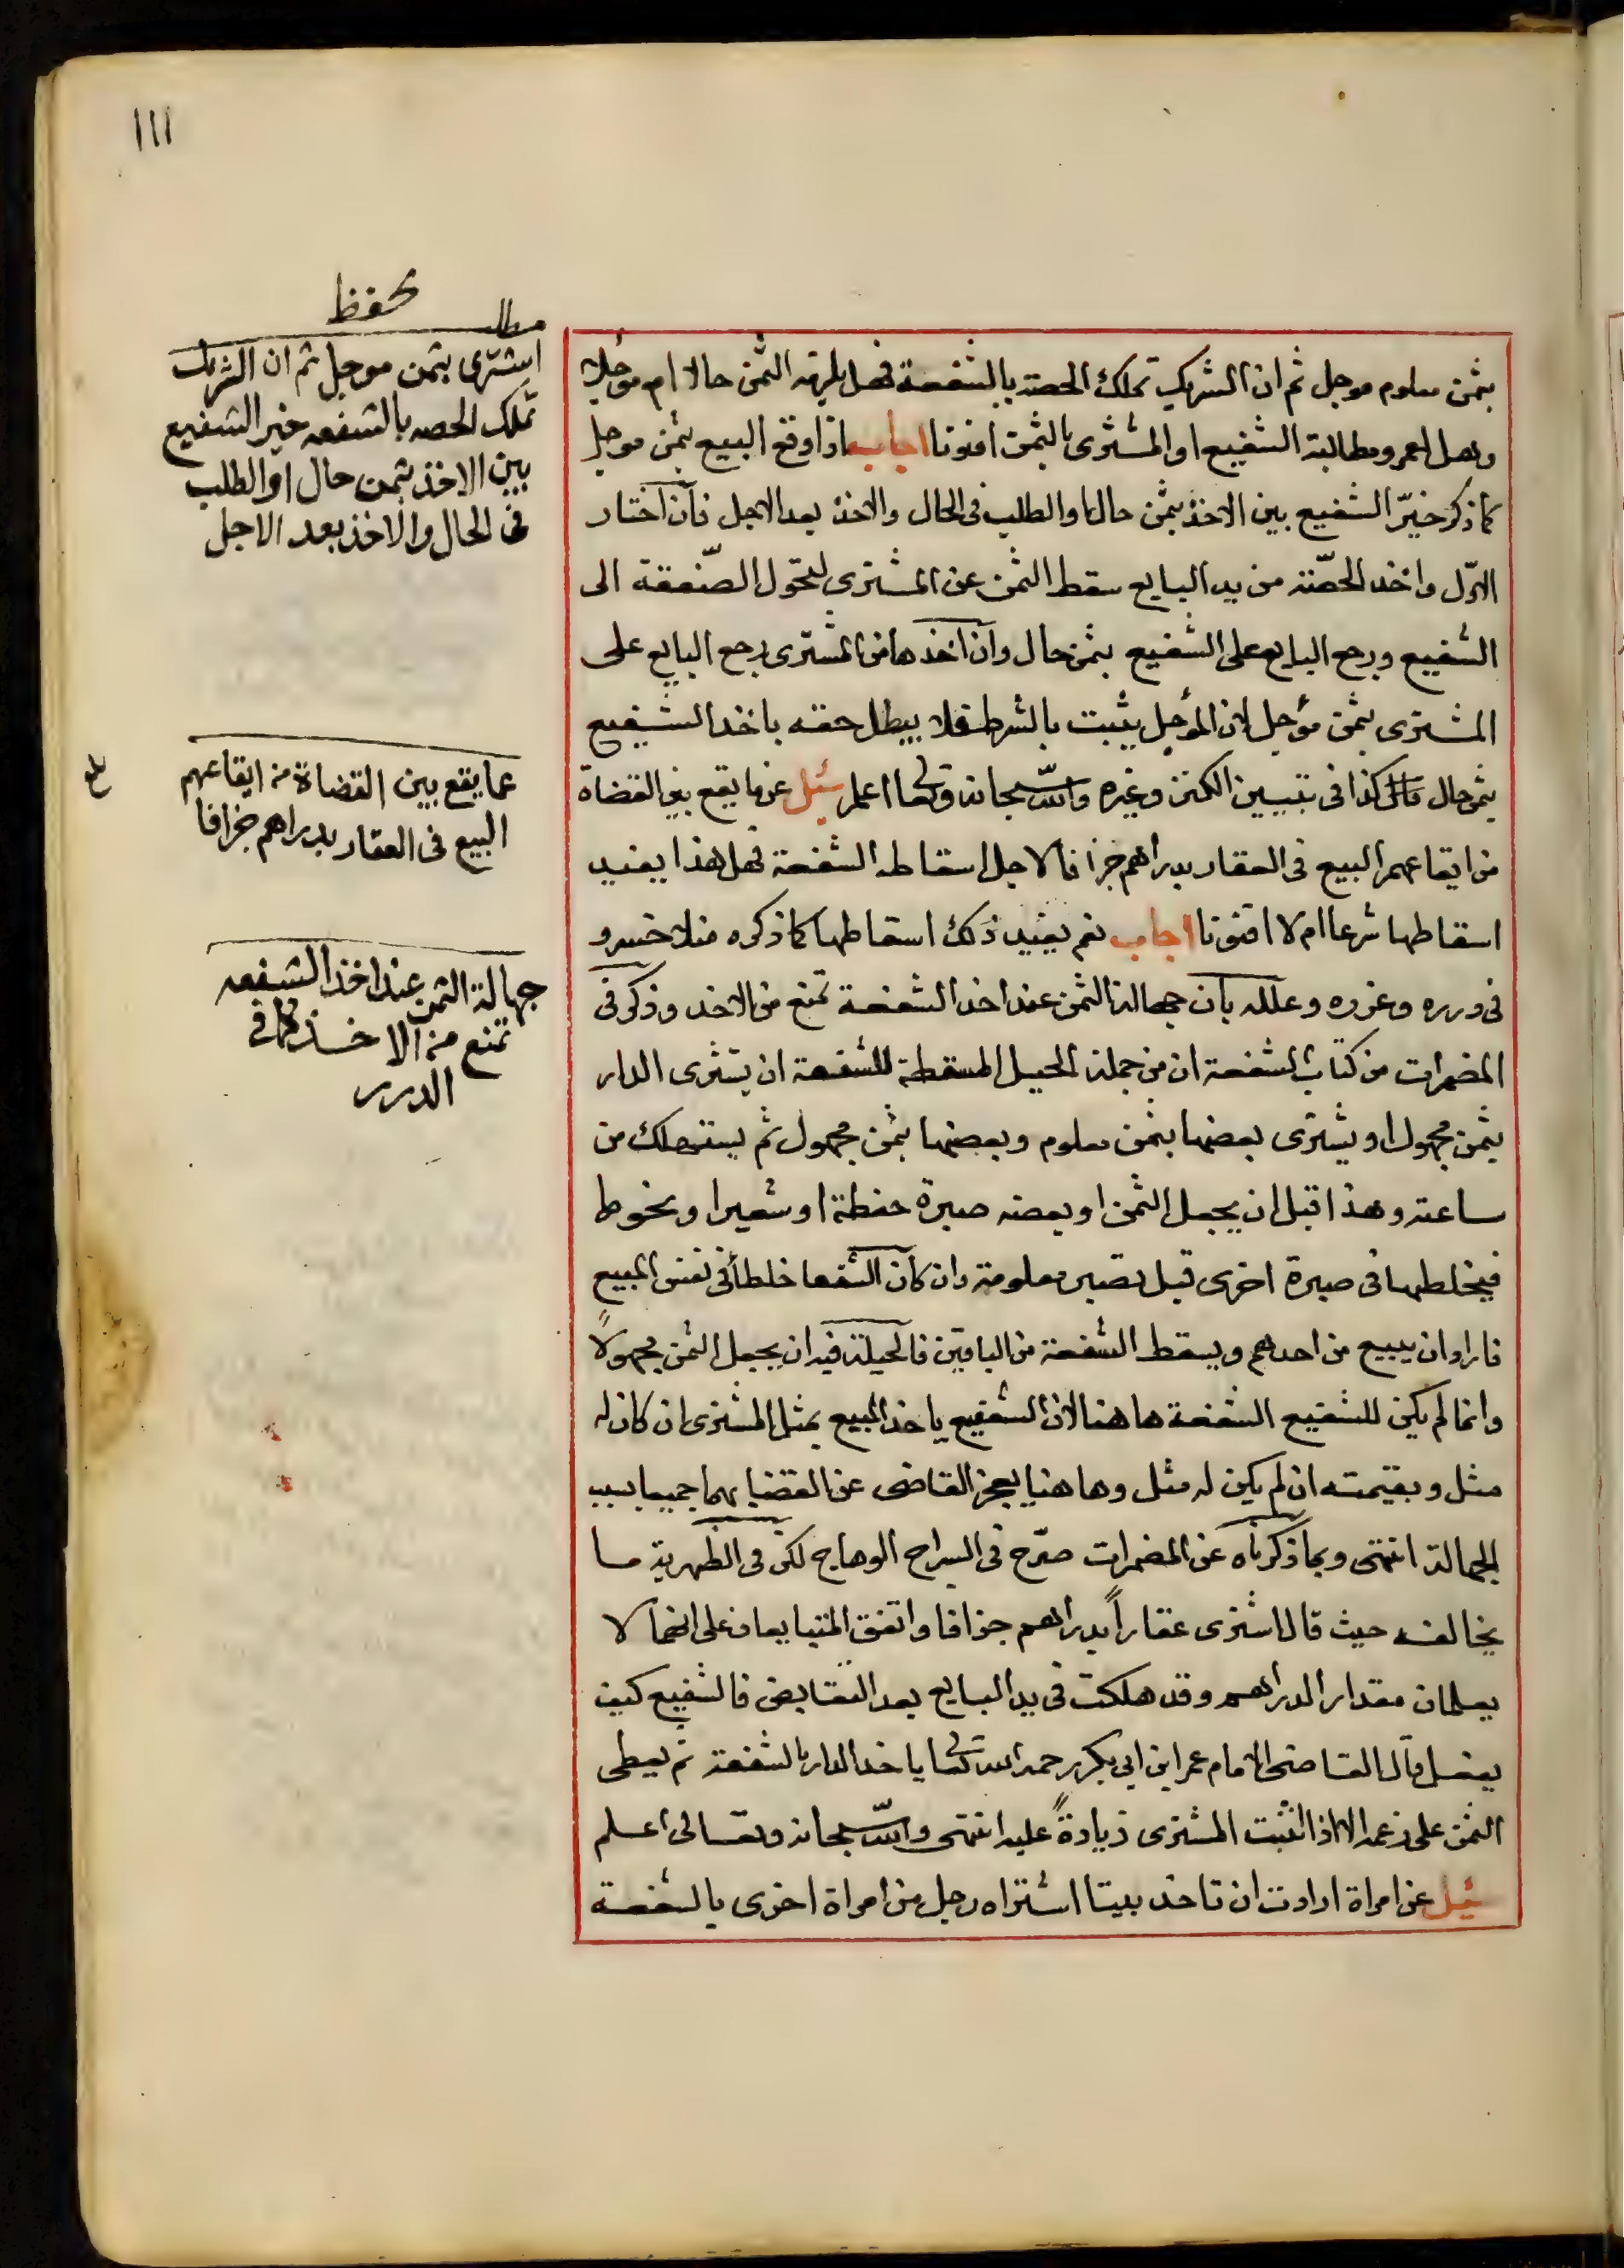 ١١١
بثمن معلوم موجل ثم ان الشريك تملك الحصة بالشفعة فهل يلزمه الثمن حالا ام موجلا
وهل لعمرو مطالبة الشفيع او المشترى بالثمن افتونا اجاب اذا وقع البيع بثمن موجل
كما ذكر خيّر الشفيع بين الاخذ بثمن حال او الطلب فى الحال والاخذ بعد الاجل فان اختار
الاوّل واخذ الحصّة من يد البايع سقط الثمن عن المشترى لتحوّل الصّفقة الى
الشفيع ورجع البايع على الشفيع بثمن حال وان اخذها من المشترى رجع البايع على
المشترى بثمن مؤجل لان المؤجل يثبت بالشرط فلا يبطل حقه باخذ الشفيع
بثمن حال كذا فى تبيين الكنز وغيره والله سبحانه وتعالى اعلم سئل عن ما يقع بين القضاة
من ايقاعهم البيع فى العقار بدراهم جزافا لاجل اسقاط الشفعة فهل هذا يفيد
اسقاطها شرعا ام لا افتونا اجاب نعم يفيد ذلك اسقاطها كما ذكره منلا خسرو
فى درره وغرره وعلله بان جهالة الثمن عند اخذ الشفعة تمنع من الاخذ وذكر فى
المضمرات من كتاب الشفعة ان من جملة الحيل المسقطة للشفعة ان يشترى الدار
بثمن مجهول او يشترى بعضها بثمن معلوم وبعضها بثمن مجهول ثم يستهلك من
ساعته وهذا قبل ان يجعل الثمن او بعضه صبرة حنطة او شعيرا ونحوها
فيخلطها فى صبرة اخرى قبل تصير معلومة وان كان الشفعا خلطا فى نفس المبيع
فاراد ان يبيع من احدهم ويسقط الشفعة من الباقين فالحيلة فيه ان يجعل الثمن مجهولا
وانما لم يكن للشفيع الشفعة هاهنا لان الشفيع ياخذ المبيع بمثل المشترى ان كان له
مثل وبقيمته ان لم يكن له مثل وهاهنا يعجز القاضى عن القضا بهما جميعا بسبب
الجهالة انتهى وبما ذكرناه عن المضمرات صرّح فى السراج الوهاج لكن فى الظهرية ما
يخالفه حيث قال اشترى عقاراً بدراهم جزافا واتفق المتبايعان على انهما لا
يعلمان مقدار الدراهم وقد هلكت فى يد البايع بعد التقابض فالشفيع كيف
يفعل قال القاضى الامام عمر ابن ابى بكر رحمه الله تعالى ياخذ الدار بالشفعة ثم يعطى
الثمن على زعمه الا اذا اثبت المشترى زيادةً عليه انتهى والله سبحانه وتعالى اعلم
سئل عن امراة ارادت ان تاخذ بيتا اشتراه رجل من امراة اخرى بالشفعة
يحفظ
مطلب
اشترى بثمن موجل ثم ان الشريك
تملك الحصه بالشفعه خير الشفيع
بين الاخذ بثمن حال او الطلب
فى الحال والاخذ بعد الاجل
عما يقع بين القضاة من ايقاعهم
البيع فى العقار بدراهم جزافا
جهالة الثمن عند اخذ الشفعه
تمنع من الاخذ كما فى
الدرر